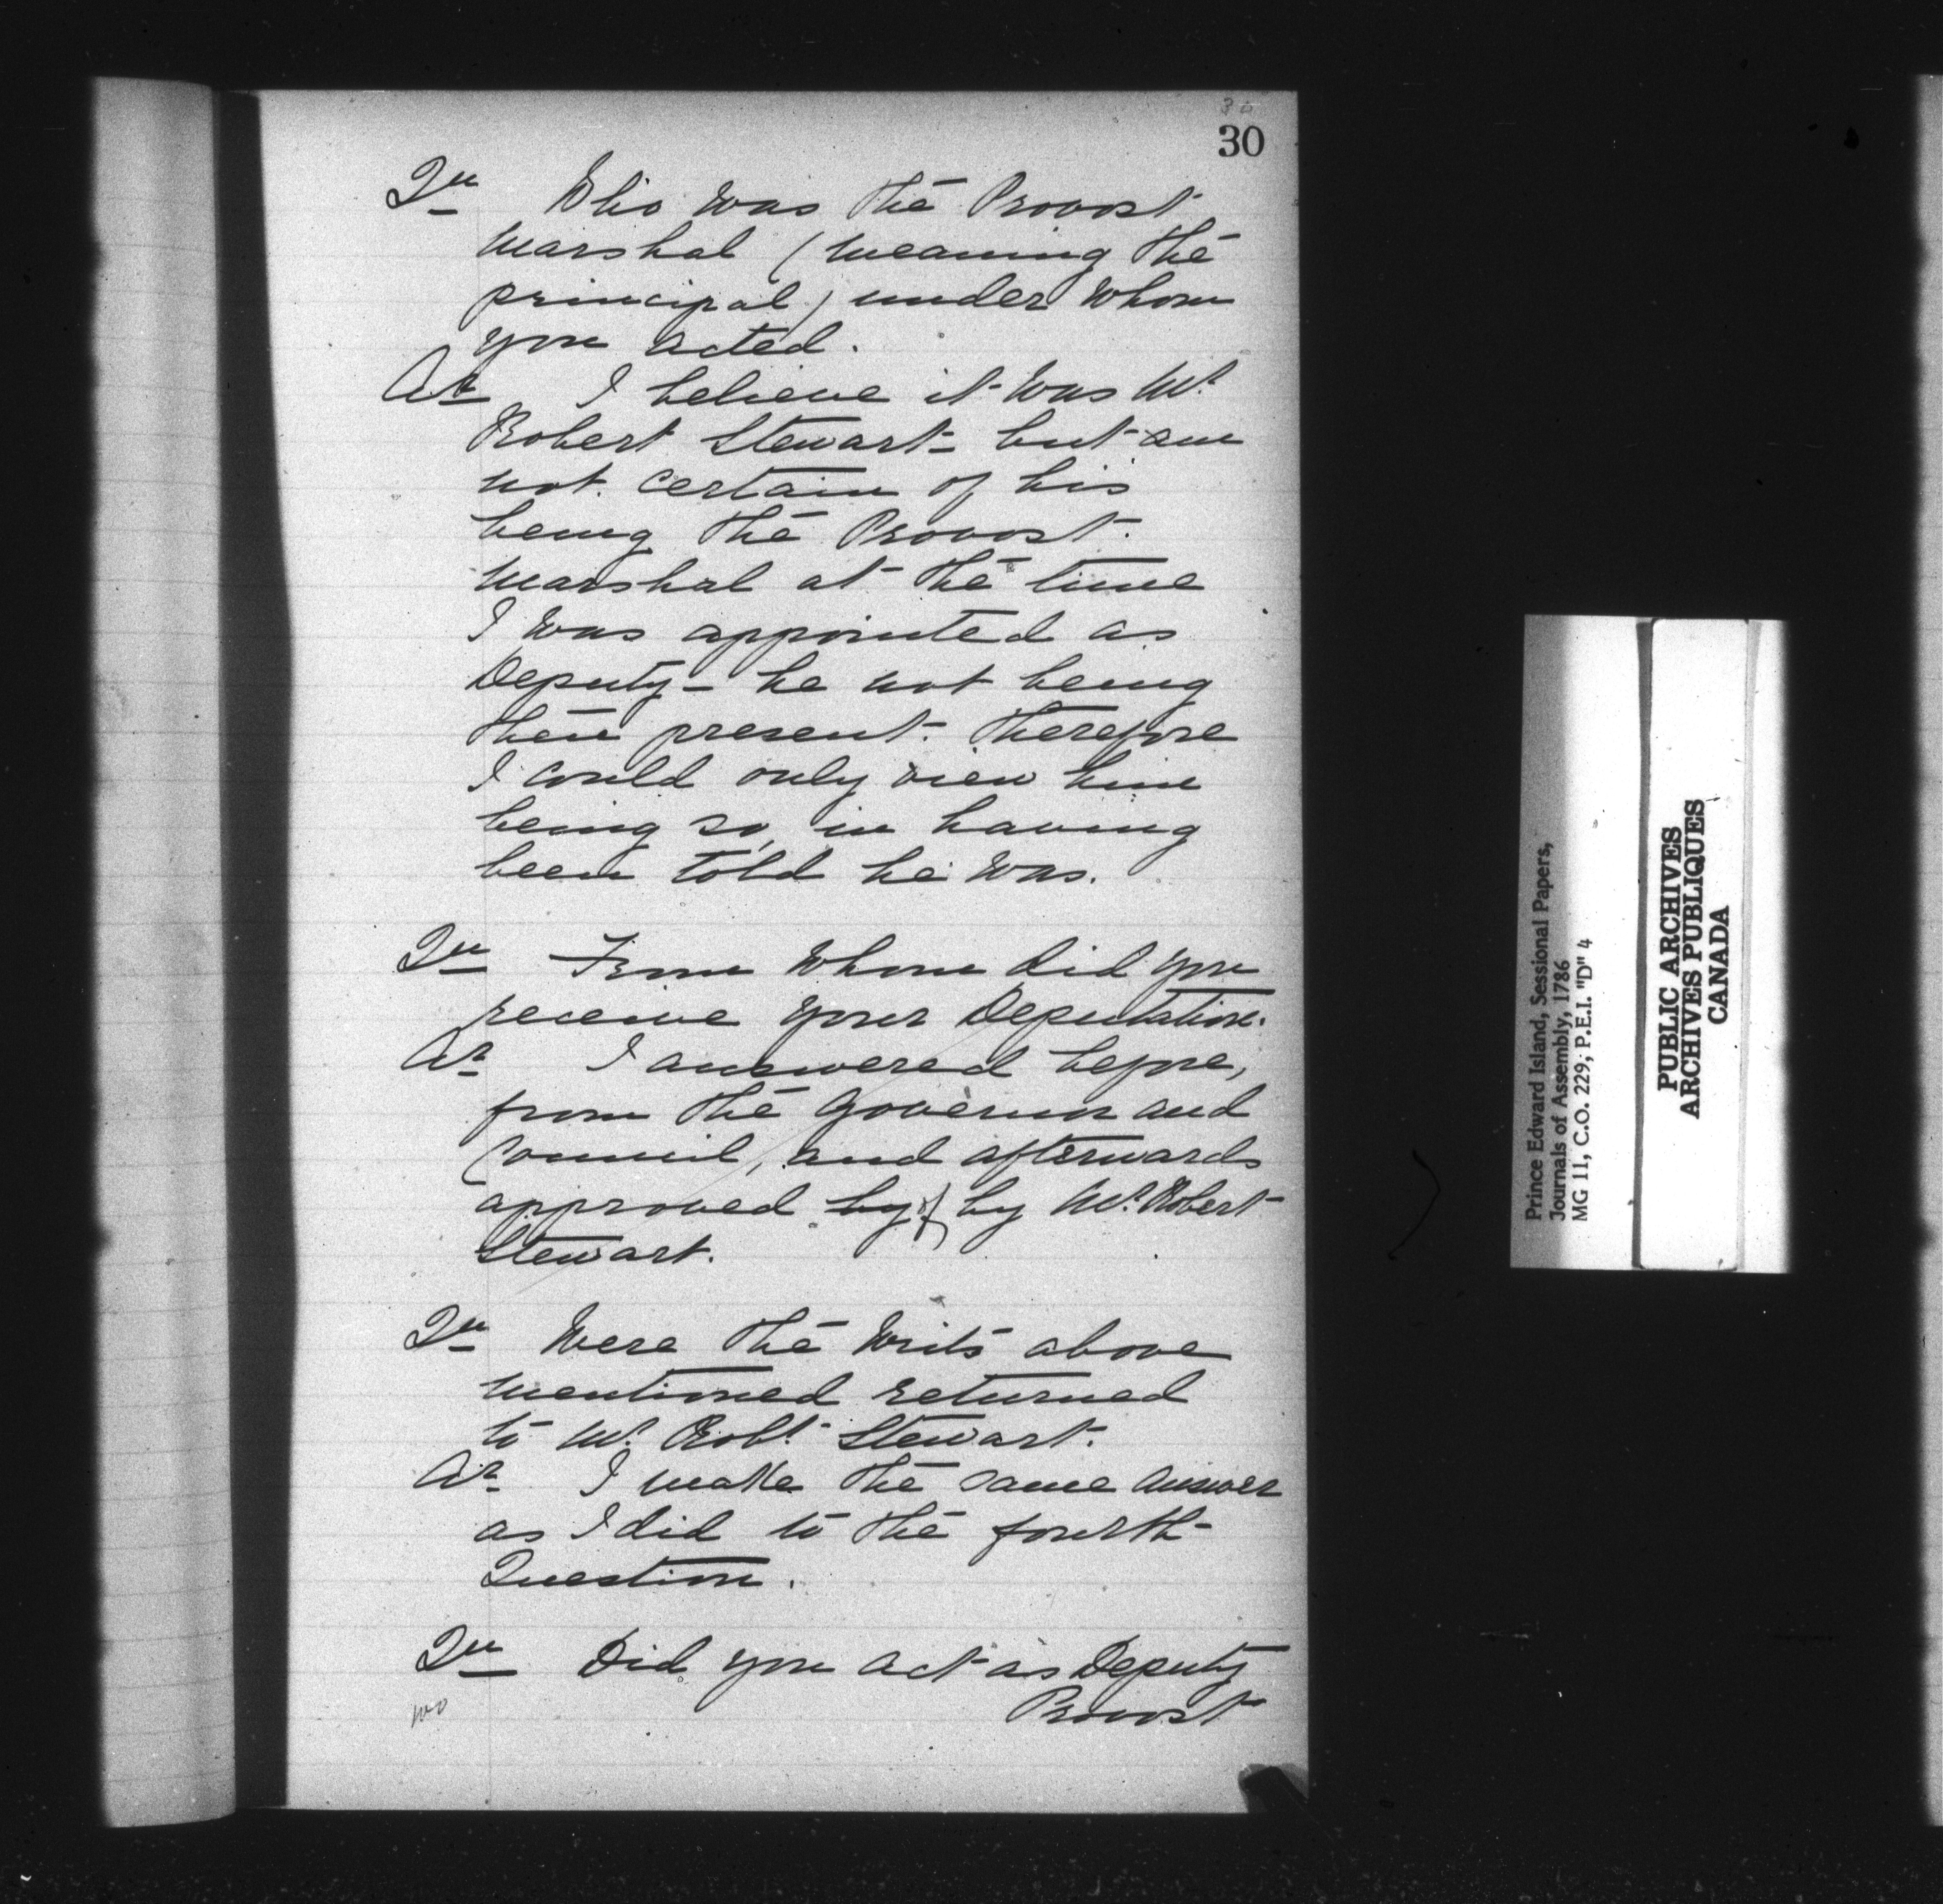 30
30
Qu Who was the Provost
Marshal (meaning the
principal) under whom
you acted.
Ar I believe it was Mr
Robert Stewart - but am
not certain of his
being the Provost
Marshal at the time
I was appointed as
Deputy - he not being
then present. Therefore
I could only view him
being so, in having
been told he was.
Qu From whom did you
receive your Deputation.
Ar I answered before,
from the Governor and
Council, and afterwards
approved by of by Mr. Robert
Stewart.
Qu Were the Writs above
mentioned returned
to Mr. Robt. Stewart.
Ar I make the same answer
as I did to the fourth
Question.
Qu Did you act as Deputy
Provost
Prince Edward Island, Sessional Papers,
Journals of Assembly, 1786
MG 11, C.O. 229, P.E.I. "D" 4
PUBLIC ARCHIVES
ARCHIVES PUBLIQUES
CANADA